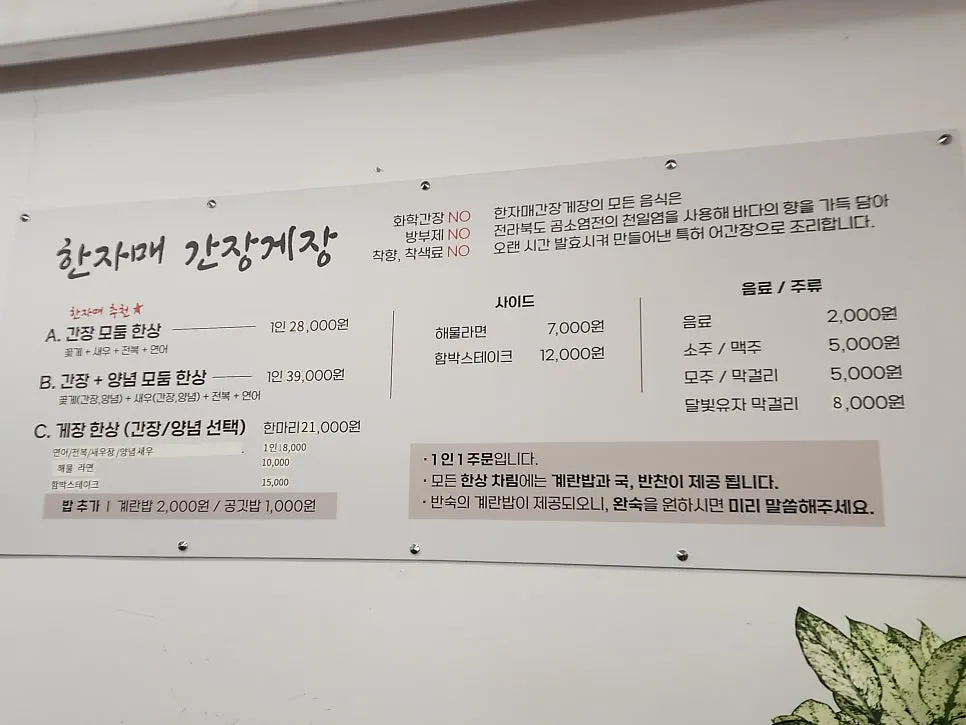 한자매 간장게장
화학간장 NO
방부제 NO
착향, 착색료 NO
한자매간장게장의 모든 음식은
전라북도 곰소염전의 천일염을 사용해 바다의 향을 가득 담아
오랜 시간 발효시켜 만들어낸 특허 어간장으로 조리합니다.
한자매 추천★
A. 간장 모둠 한상 1인 28,000원
꽃게 + 새우 + 전복 + 연어
B. 간장 + 양념 모둠 한상 1인 39,000원
꽃게(간장,양념) + 새우(간장,양념) + 전복 + 연어
C. 게장 한상 (간장/양념 선택) 한마리21,000원
연어/전복/새우장/양념새우 1인18,000
해물 라면 10,000
함박스테이크 15,000
밥 추가 | 계란밥 2,000원 / 공깃밥 1,000원
사이드
해물라면 7,000원
함박스테이크 12,000원
음료 / 주류
음료 2,000원
소주 / 맥주 5,000원
모주 / 막걸리 5,000원
달빛유자 막걸리 8,000원
· 1인 1주문입니다.
· 모든 한상 차림에는 계란밥과 국, 반찬이 제공 됩니다.
· 반숙의 계란밥이 제공되오니, 완숙을 원하시면 미리 말씀해주세요.